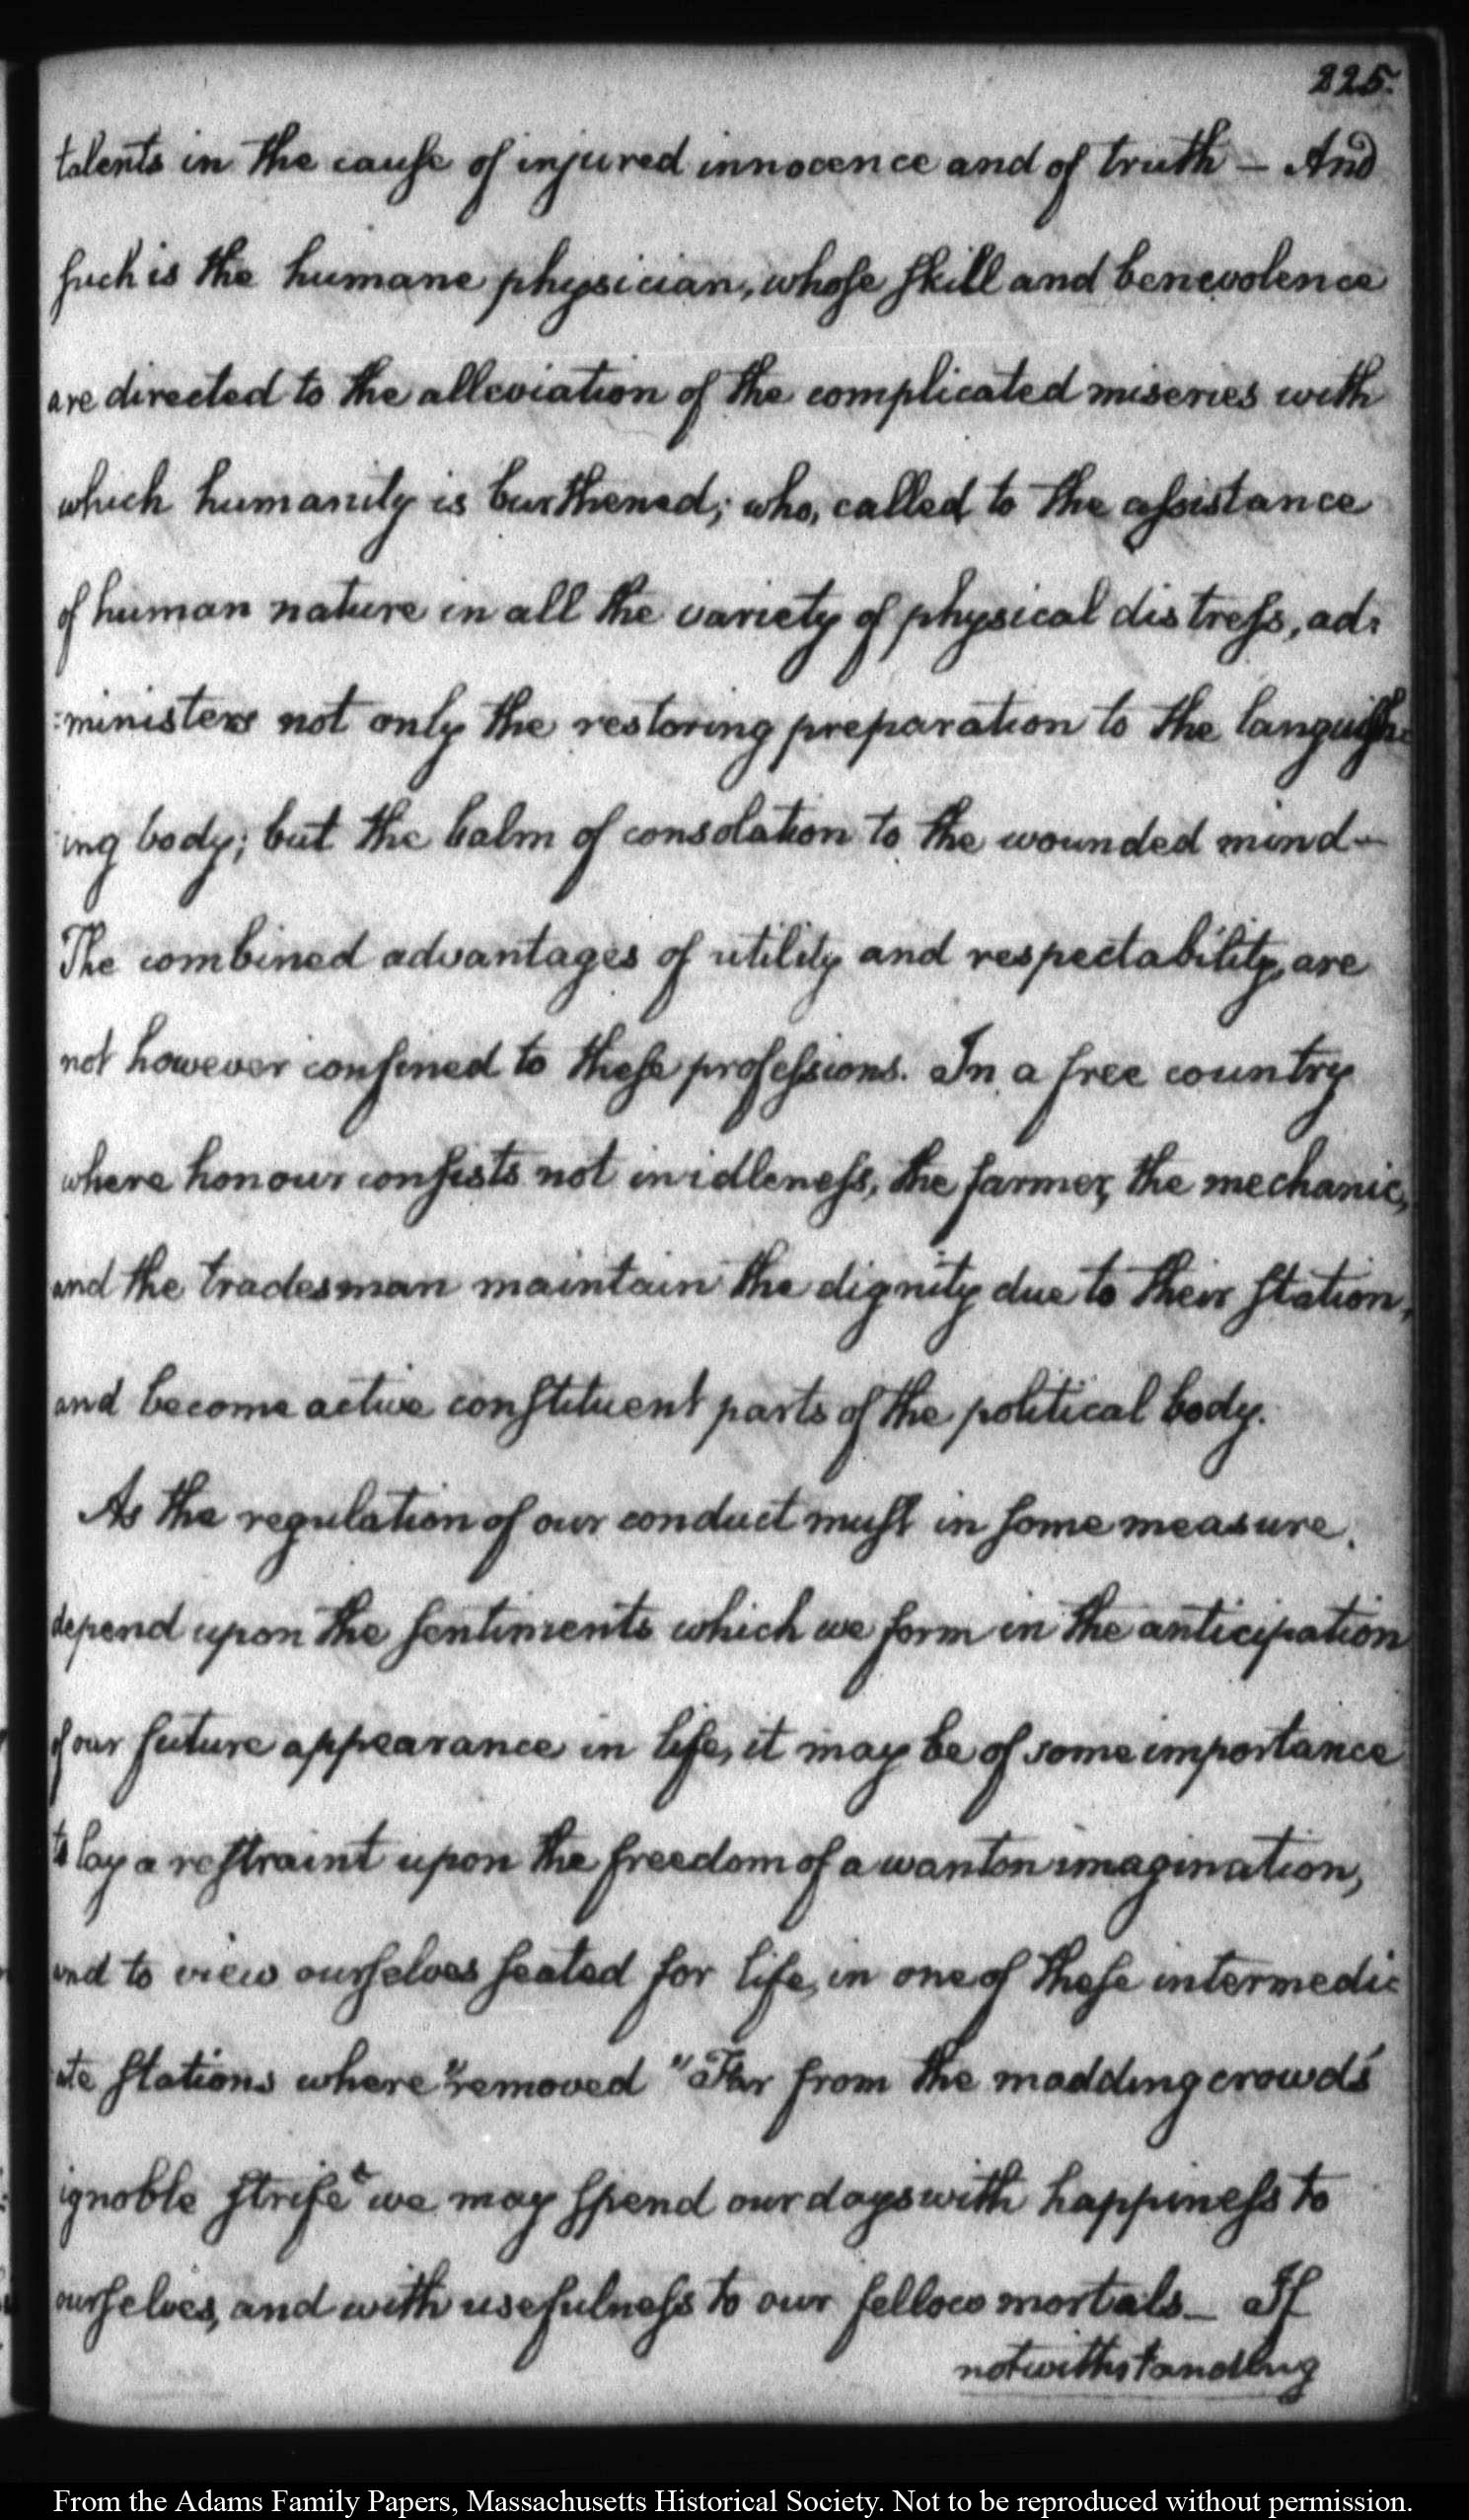 225.
talents in the cause of injured innocence and of truth — And
such is the humane physician, whose skill and benevolence
are directed to the alleviation of the complicated miseries with
which humanity is burthened; who, called to the assistance
of human nature in all the variety of physical distress, ad:
:ministers not only the restoring preparation to the languish:
:ing body; but the balm of consolation to the wounded mind —
The combined advantages of utility and respectability, are
not however confined to these professions. In a free country
where honour consists not in idleness, the farmer, the mechanic,
and the tradesman maintain the dignity due to their station,
and become active constituent parts of the political body.
As the regulation of our conduct must in some measure.
depend upon the sentiments which we form in the anticipation
of our future appearance in life, it may be of some importance
to lay a restraint upon the freedom of a wanton imagination,
and to view ourselves seated for life, in one of these intermedi:
ate stations where "removed "Far from the madding crowd's
ignoble strife" we may spend our days with happiness to
ourselves, and with usefulness to our fellow mortals — If
notwithstanding
From the Adams Family Papers, Massachusetts Historical Society. Not to be reproduced without permission.